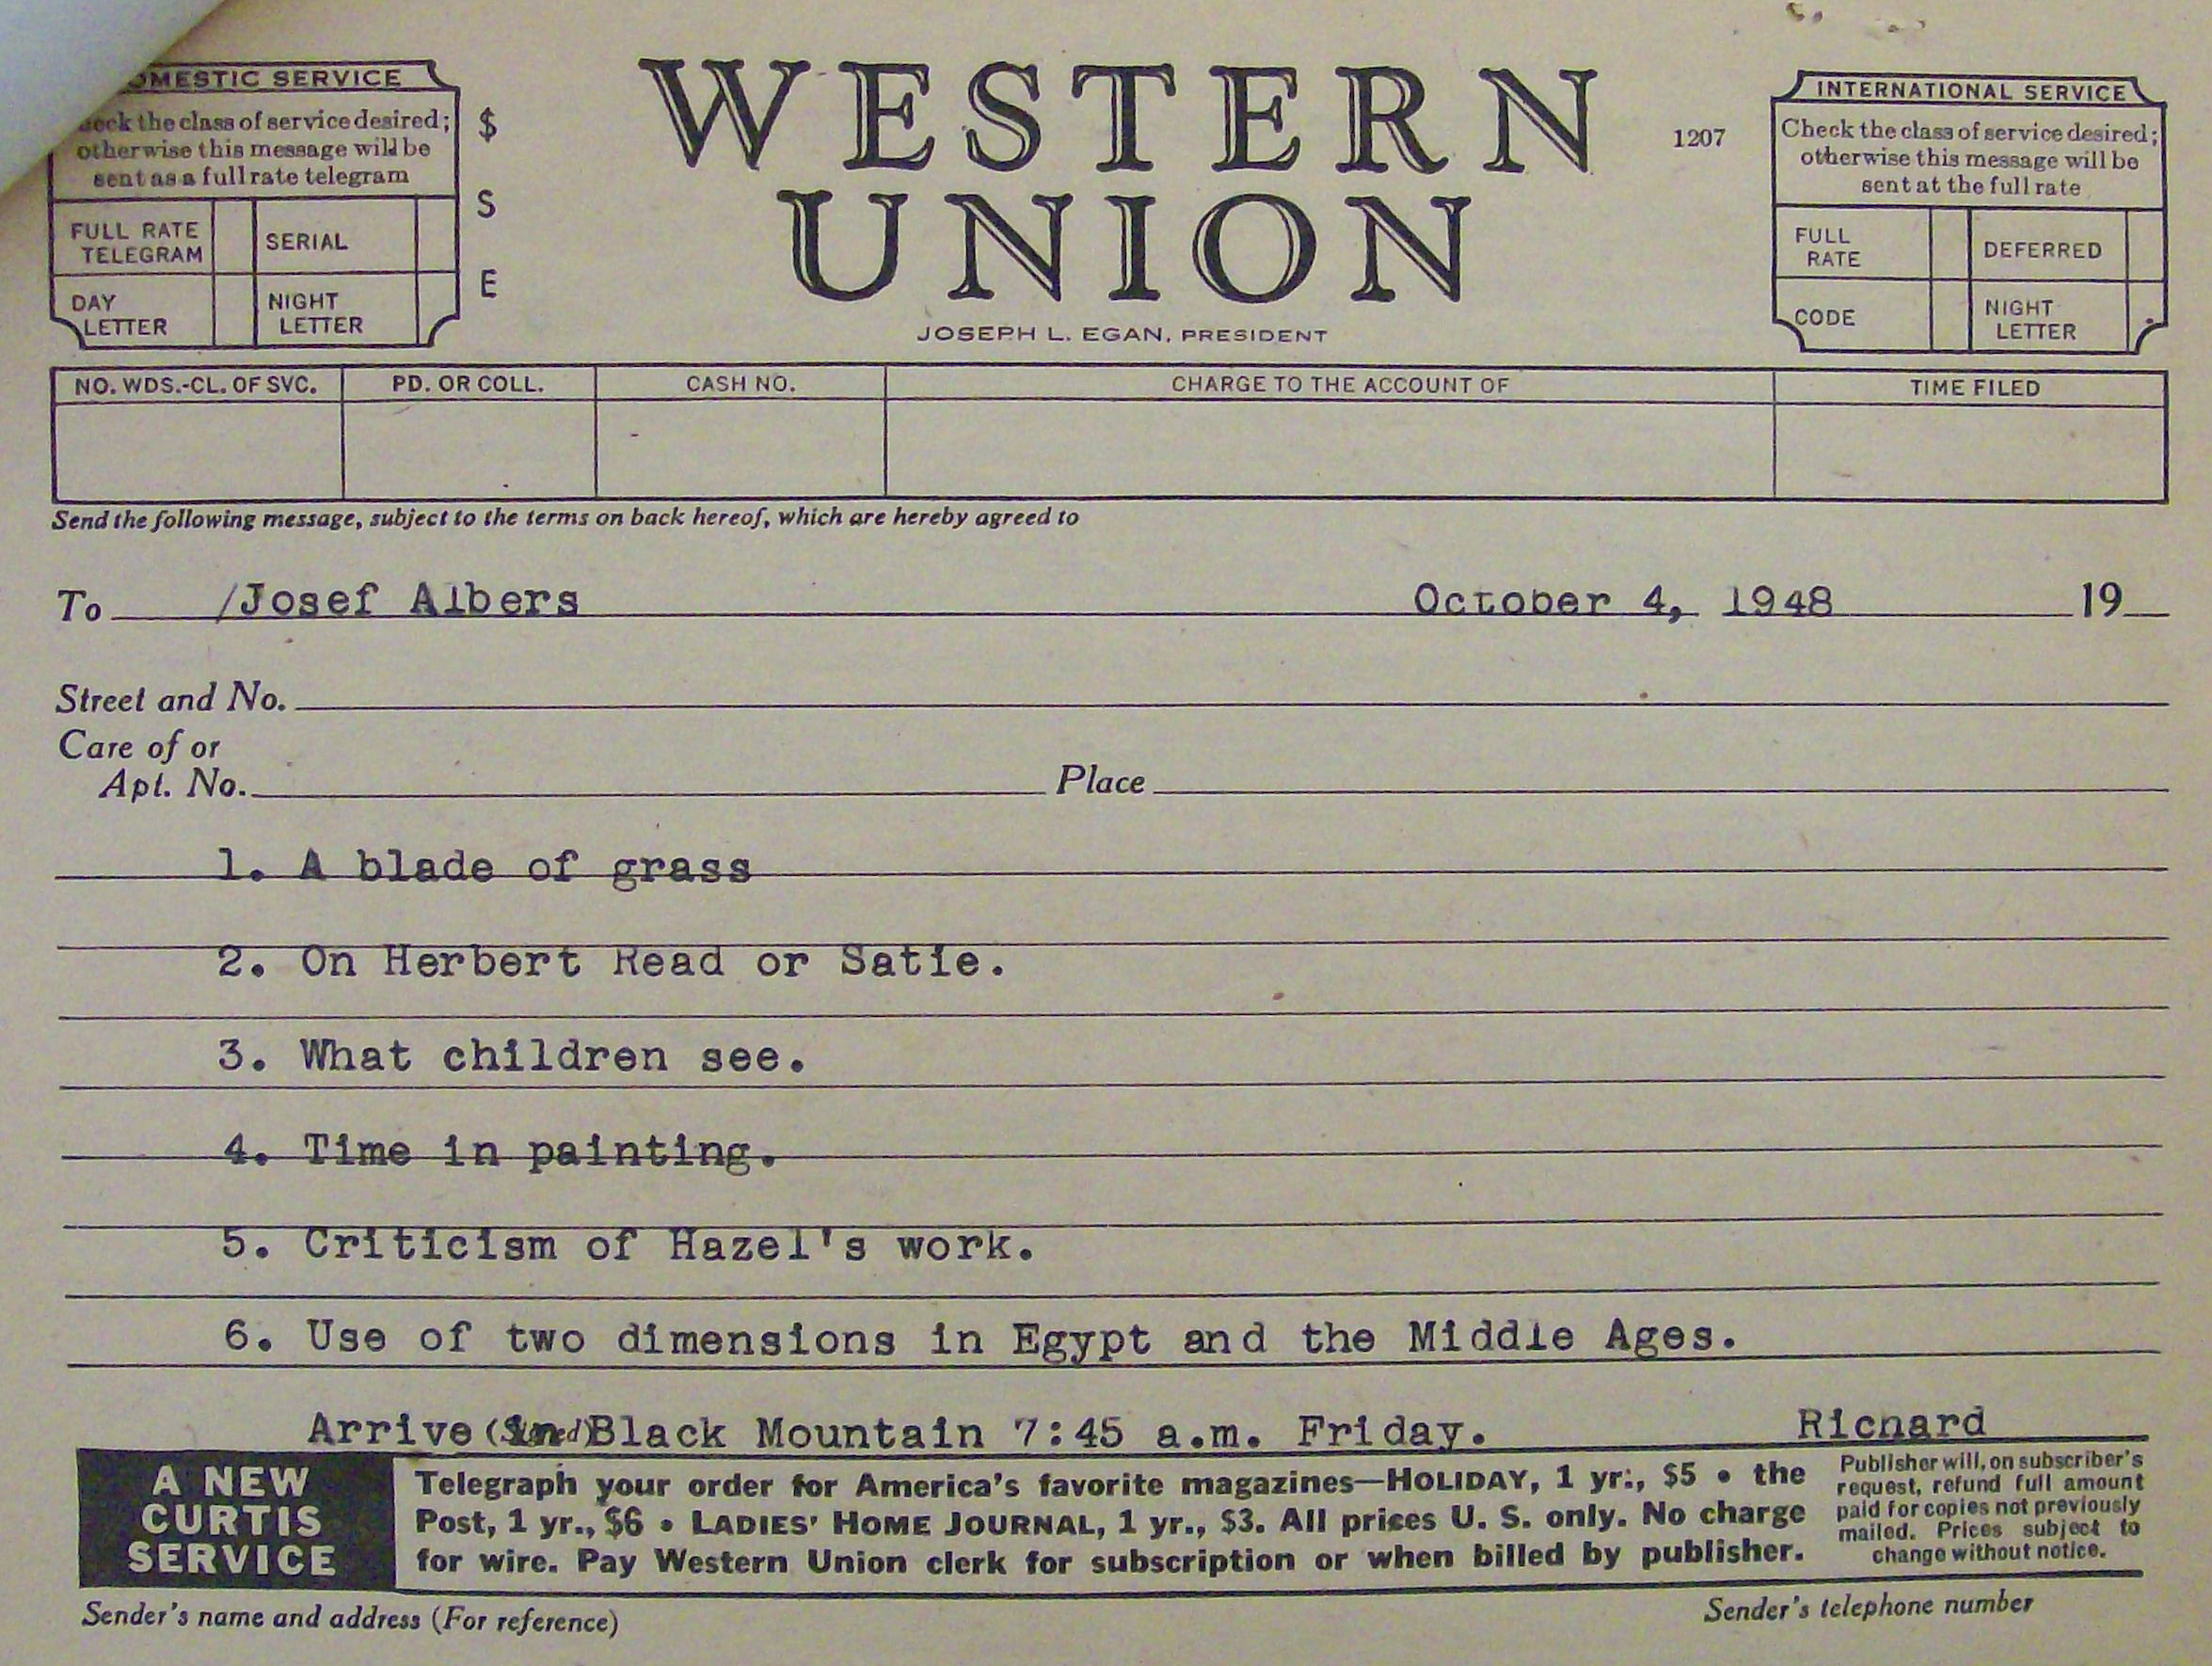 OMESTIC SERVICE
eck the class of service desired;
otherwise this message will be
sent as a full rate telegram
FULL RATE TELEGRAM
SERIAL
DAY LETTER
NIGHT LETTER
$
S
E
WESTERN
UNION
JOSEPH L. EGAN, PRESIDENT
1207
INTERNATIONAL SERVICE
Check the class of service desired;
otherwise this message will be
sent at the full rate
FULL RATE
DEFERRED
CODE
NIGHT LETTER
NO. WDS.-CL. OF SVC. PD. OR COLL. CASH NO. CHARGE TO THE ACCOUNT OF TIME FILED
Send the following message, subject to the terms on back hereof, which are hereby agreed to
To /Josef Albers October 4, 1948 19
Street and No.
Care of or
Apt. No. Place
1. A blade of grass
2. On Herbert Read or Satie.
3. What children see.
4. Time in painting.
5. Criticism of Hazel's work.
6. Use of two dimensions in Egypt and the Middle Ages.
Arrive in Black Mountain 7:45 a.m. Friday. Richard
(Signed)
A NEW
CURTIS
SERVICE
Telegraph your order for America's favorite magazines—HOLIDAY, 1 yr., $5 • the
Post, 1 yr., $6 • LADIES' HOME JOURNAL, 1 yr., $3. All prices U. S. only. No charge
for wire. Pay Western Union clerk for subscription or when billed by publisher.
Publisher will, on subscriber's
request, refund full amount
paid for copies not previously
mailed. Prices subject to
change without notice.
Sender's name and address (For reference) Sender's telephone number